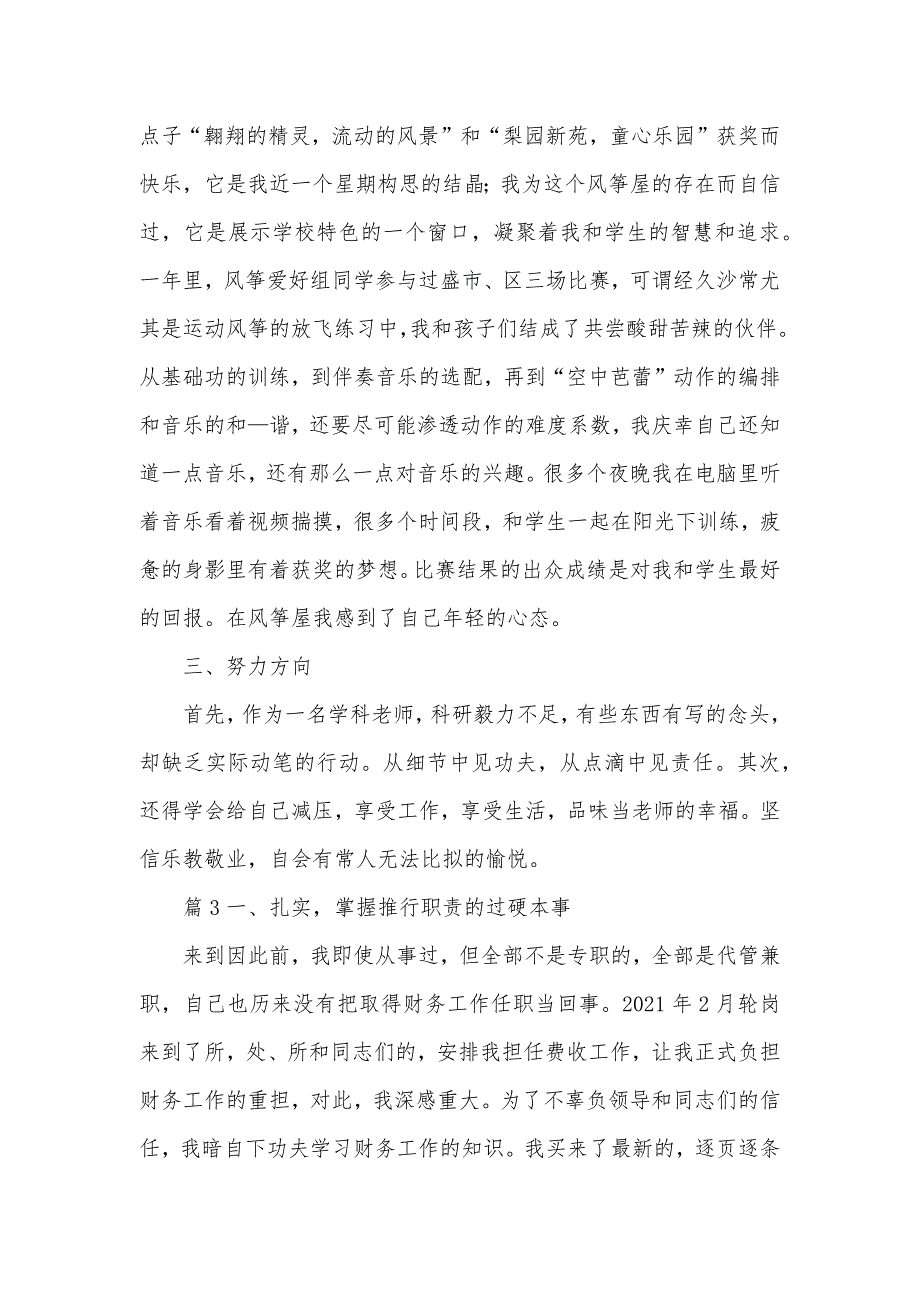 点子“翱翔的精灵，流动的风景”和“梨园新苑，童心乐园”获奖而
快乐，它是我近一个星期构思的结晶；我为这个风筝屋的存在而自信
过，它是展示学校特色的一个窗口，凝聚着我和学生的智慧和追求。
一年里，风筝爱好组同学参与过盛市、区三场比赛，可谓经久沙常尤
其是运动风筝的放飞练习中，我和孩子们结成了共尝酸甜苦辣的伙伴。
从基础功的训练，到伴奏音乐的选配，再到“空中芭蕾”动作的编排
和音乐的和—谐，还要尽可能渗透动作的难度系数，我庆幸自己还知
道一点音乐，还有那么一点对音乐的兴趣。很多个夜晚我在电脑里听
着音乐看着视频揣摸，很多个时间段，和学生一起在阳光下训练，疲
惫的身影里有着获奖的梦想。比赛结果的出众成绩是对我和学生最好
的回报。在风筝屋我感到了自己年轻的心态。
三、努力方向
首先，作为一名学科老师，科研毅力不足，有些东西有写的念头，
却缺乏实际动笔的行动。从细节中见功夫，从点滴中见责任。其次，
还得学会给自己减压，享受工作，享受生活，品味当老师的幸福。坚
信乐教敬业，自会有常人无法比拟的愉悦。
篇 3 一、扎实，掌握推行职责的过硬本事
来到因此前，我即使从事过，但全部不是专职的，全部是代管兼
职，自己也历来没有把取得财务工作任职当回事。2021 年 2 月轮岗
来到了所，处、所和同志们的，安排我担任费收工作，让我正式负担
财务工作的重担，对此，我深感重大。为了不辜负领导和同志们的信
任，我暗自下功夫学习财务工作的知识。我买来了最新的，逐页逐条